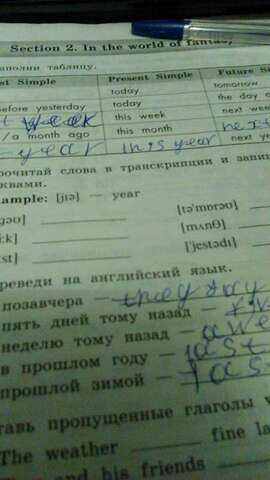 Section 2. In the world of fantasy
аполни таблицу.
st Simple Present Simple Future S
today tomorrow
before yesterday today the day a
t week this week next wee
/a month ago this month next
year this year next ye
рочитай слова в транскрипции и запи
квами.
ample: [jɪə] — year
gəʊ] [təˈmɒrəʊ]
i:k] [mʌnθ]
ɪst] [ˈjestədɪ]
реведи на английский язык.
позавчера —
пять дней тому назад —
неделю тому назад — a we
в прошлом году — last
прошлой зимой — last
тавь пропущенные глаголы
The weather fine la
and his friends